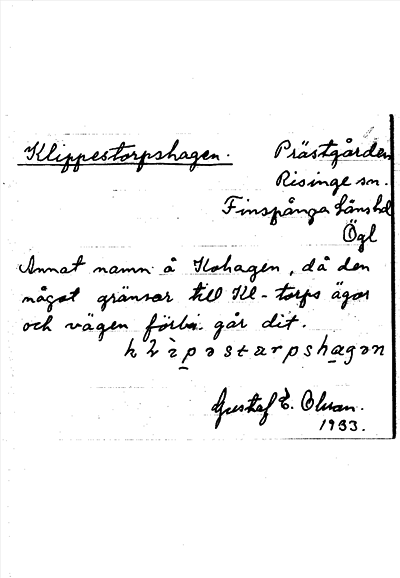 Klippestorpshagen. Prästgården
Risinge sn.
Finspånga länshd
Ögl
Annat namn å Kohagen, då den
något gränsar till Kl-torps ägor
och vägen förbi går dit.
Gustaf E. Olsson.
1933.